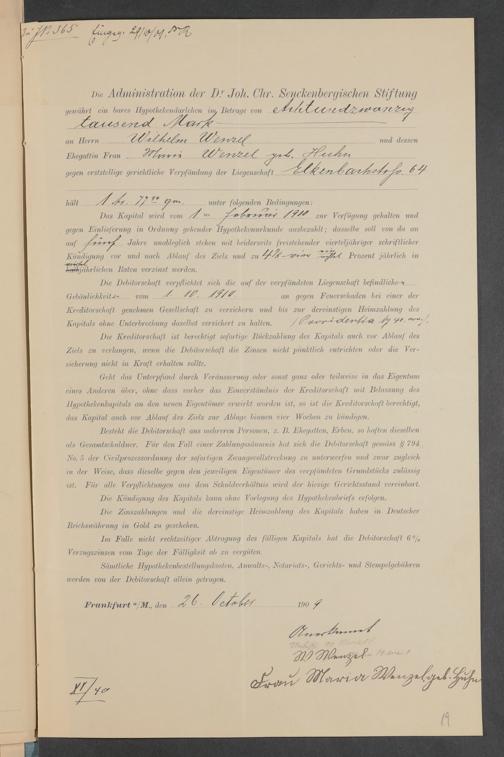 J.N. 365 Eingeg. 29/10/09
Die Administration der Dr Joh. Chr. Senckenbergischen Stiftung
gewährt ein bares Hypothekendarlehen im Betrage von Achtundzwanzig
tausend Mark
an Herrn Wilhelm Wenzel und dessen
Ehegattin Frau Maria Wenzel geb. Huhn
gegen erststellige gerichtliche Verpfändung der Liegenschaft Elkenbachstrs. 64
hält 1 ar. 77 qm. unter folgenden Bedingungen:
Das Kapital wird vom 1 Februar 1910 zur Verfügung gehalten und
gegen Einlieferung in Ordnung gehender Hypothekenurkunde ausbezahlt; dasselbe soll von da an
auf fünf Jahre unablöglich stehen mit beiderseits freistehender vierteljähriger schriftlicher
Kündigung vor und nach Ablauf des Ziels und zu 4⅛ vier Prozent jährlich in
jährlichen Raten verzinst werden.
Die Debitorschaft verpflichtet sich die auf der verpfändeten Liegenschaft befindlichen
Gebäulichkeiten vom 1. 10. 1910 an gegen Feuerschaden bei einer der
Kreditorschaft genehmen Gesellschaft zu versichern und bis zur dereinstigen Heimzahlung des
Kapitals ohne Unterbrechung daselbst versichert zu halten.
Die Kreditorschaft ist berechtigt sofortige Rückzahlung des Kapitals auch vor Ablauf des
Ziels zu verlangen, wenn die Debitorschaft die Zinsen nicht pünktlich entrichten oder die Ver-
sicherung nicht in Kraft erhalten sollte.
Geht das Unterpfand durch Veräusserung oder sonst ganz oder teilweise in das Eigentum
eines Anderen über, ohne dass vorher das Einverständnis der Kreditorschaft mit Belassung des
Hypothekenkapitals an den neuen Eigentümer erwirkt worden ist, so ist die Kreditorschaft berechtigt,
das Kapital auch vor Ablauf des Ziels zur Ablage binnen vier Wochen zu kündigen.
Besteht die Debitorschaft aus mehreren Personen, z. B. Ehegatten, Erben, so haften dieselben
als Gesamtschuldner. Für den Fall einer Zahlungssäumnis hat sich die Debitorschaft gemäss § 794
No. 5 der Civilprozessordnung der sofortigen Zwangsvollstreckung zu unterwerfen und zwar zugleich
in der Weise, dass dieselbe gegen den jeweiligen Eigentümer des verpfändeten Grundstücks zulässig
ist. Für alle Verpflichtungen aus dem Schuldverhältnis wird der hiesige Gerichtsstand vereinbart.
Die Kündigung des Kapitals kann ohne Vorlegung des Hypothekenbriefs erfolgen.
Die Zinszahlungen und die dereinstige Heimzahlung des Kapitals haben in Deutscher
Reichswährung in Gold zu geschehen.
Im Falle nicht rechtzeitiger Abtragung des fälligen Kapitals hat die Debitorschaft 6%
Verzugszinsen vom Tage der Fälligkeit ab zu vergüten.
Sämtliche Hypothekenbestellungskosten, Anwalts-, Notariats-, Gerichts- und Stempelgebühren
werden von der Debitorschaft allein getragen.
Frankfurt a/M., den 26. October 1909
Anerkannt
W Wenzel
Frau Maria Wenzel geb. Huhn
VI/40
19